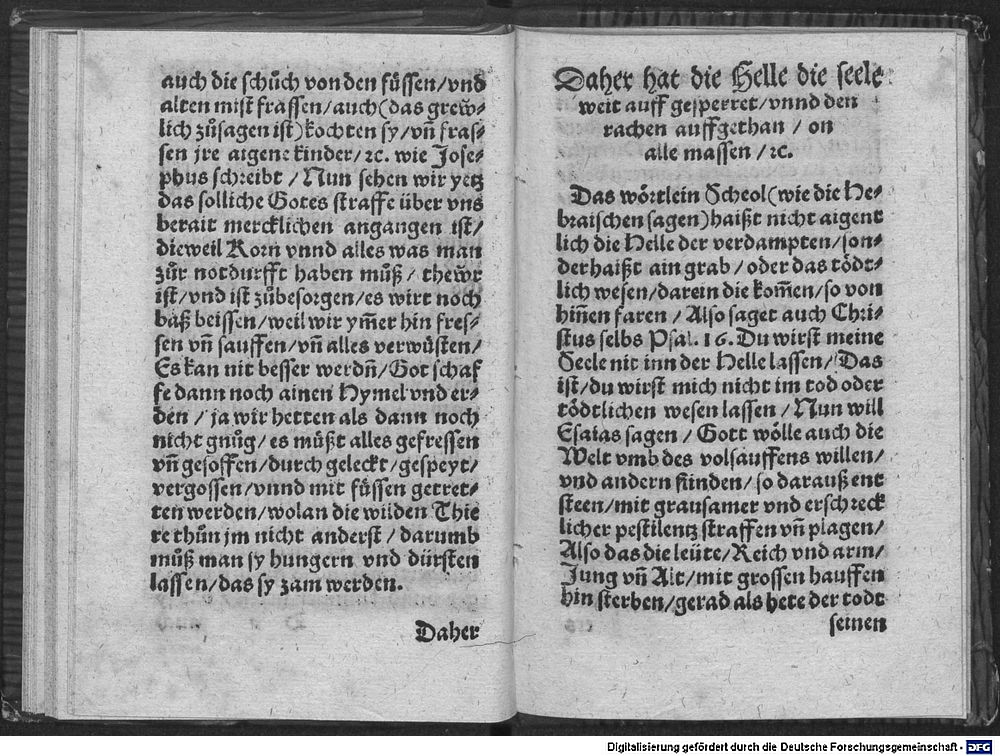 auch die schůch von den füssen/vnd
alten mist frassen/auch(das grew̃-
lich zůsagen ist)kochten sy/vñ fras-
sen jre aigene kinder/ꝛc. wie Jose-
phus schreibt / Nun sehen wir yetz
das solliche Gotes straffe über vns
berait mercklichen angangen ist/
dieweil Korn vnnd alles was man
zůr notdurfft haben můß / thew̃r
ist/vnd ist zůbesorgen/es wirt noch
baß beissen/weil wir ym̃er hin fres-
sen vñ sauffen/vñ alles verwüsten/
Es kan nit besser werdñ/Got schaf
fe dann noch ainen Hymel vnd er-
den / ja wir hetten als dann noch
nicht gnůg/es můßt alles gefressen
vñ gesoffen/durch geleckt/gespeyt/
vergossen/vnnd mit füssen getret-
ten werden/wolan die wilden Thie
re thůn jm nicht anderst / darumb
můß man sy hungern vnd dürsten
lassen/das sy zam werden.
Daher
Daher hat die Helle die seele
weit auff gesperret/vnnd den
rachen auffgethan / on
alle massen / ꝛc.
Das wörtlein Scheol(wie die He-
braischen sagen)haißt nicht aigent
lich die Helle der verdampten/son-
der haißt ain grab / oder das tödt-
lich wesen/darein die kom̃en/so von
hiñen faren / Also saget auch Chri-
stus selbs Psal. 16. Du wirst meine
Seele nit inn der Helle lassen/ Das
ist/du wirst mich nicht im tod oder
tödtlichen wesen lassen / Nun will
Esaias sagen / Gott wölle auch die
Welt vmb des volsauffens willen/
vnd andern sünden/so darauß ent
steen/mit grausamer vnd erschreck
licher pestilentz straffen vñ plagen/
Also das die leüte/Reich vnd arm/
Jung vñ Alt/mit grossen hauffen
hin sterben/gerad als hete der todt
seinen
Digitalisierung gefördert durch die Deutsche Forschungsgemeinschaft - DFG